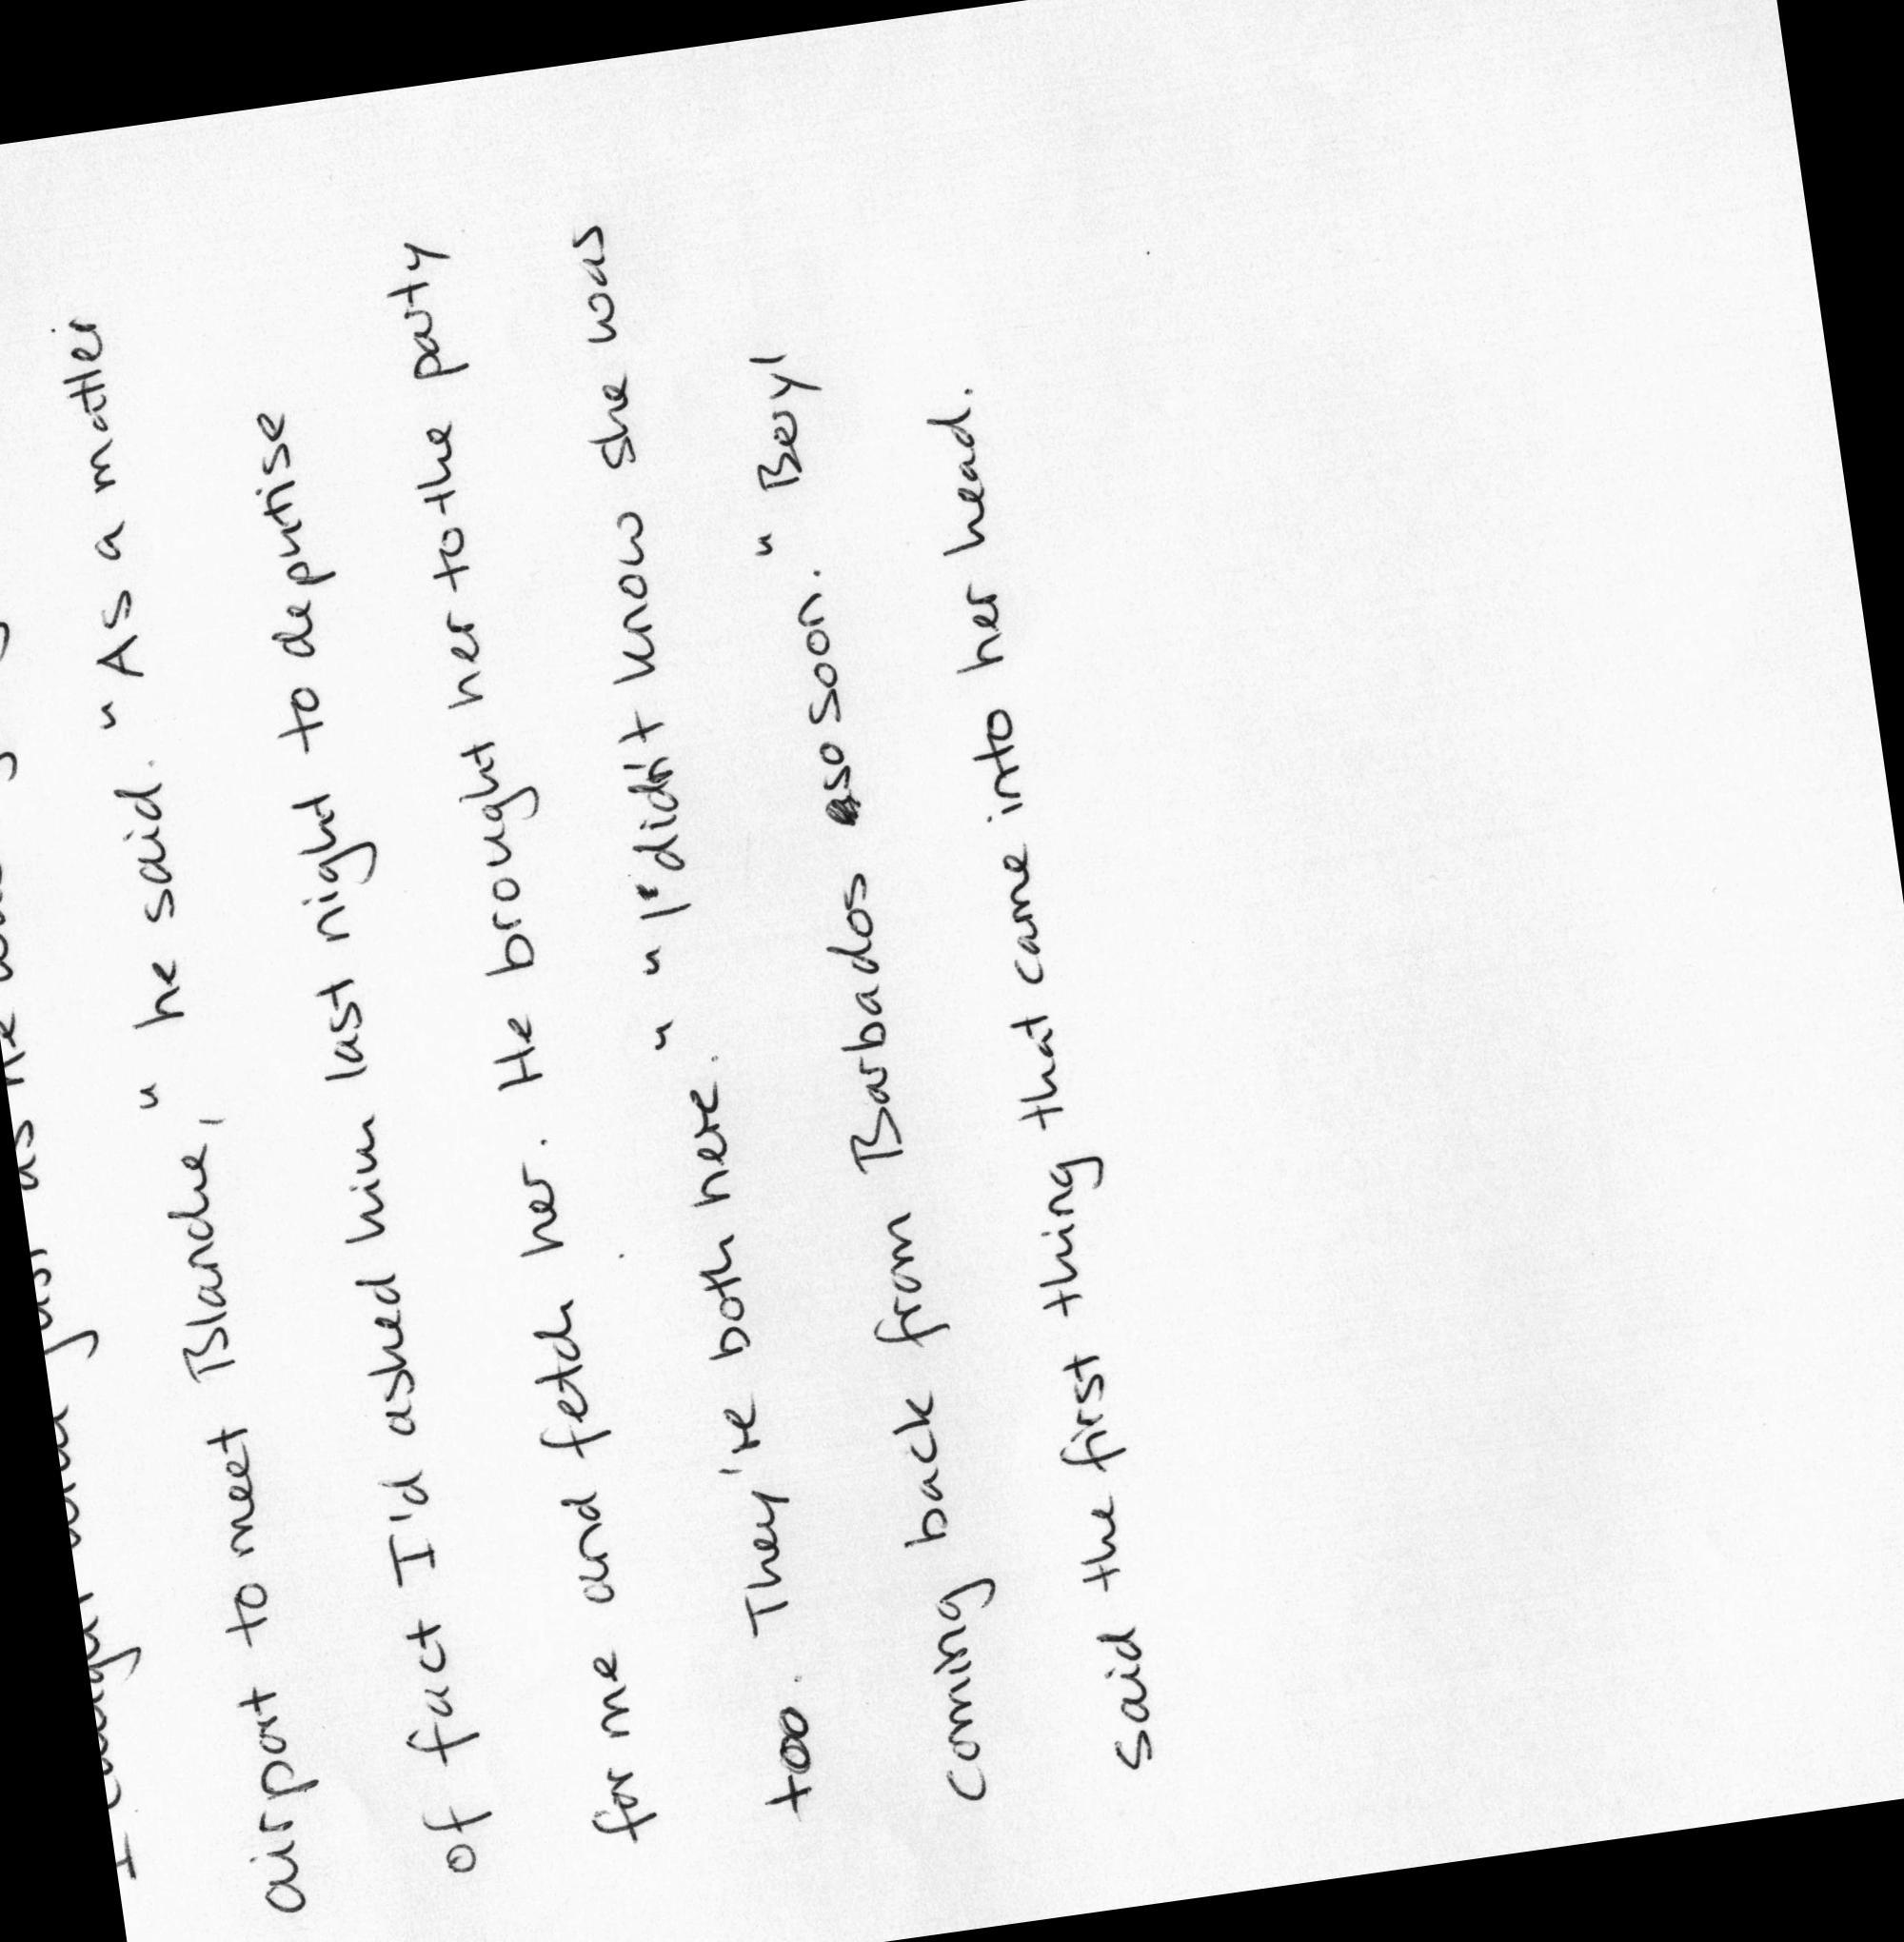 I caught just as he
airport to meet Blanche, " he said. " As a matter
of fact I'd asked him last night to deputise
for me and fetch her. He brought her to the party
too. They're both here. " " I didn't know she was
coming back from Barbados so soon. " Beryl
said the first thing that came into her head.